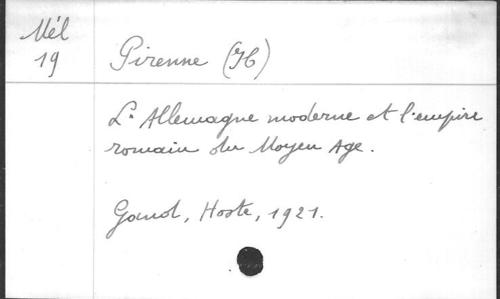 Mél
19
Pirenne (H)
L'Allemagne moderne et l'empire
romain du Moyen Age.
Gand, Hoste, 1921.